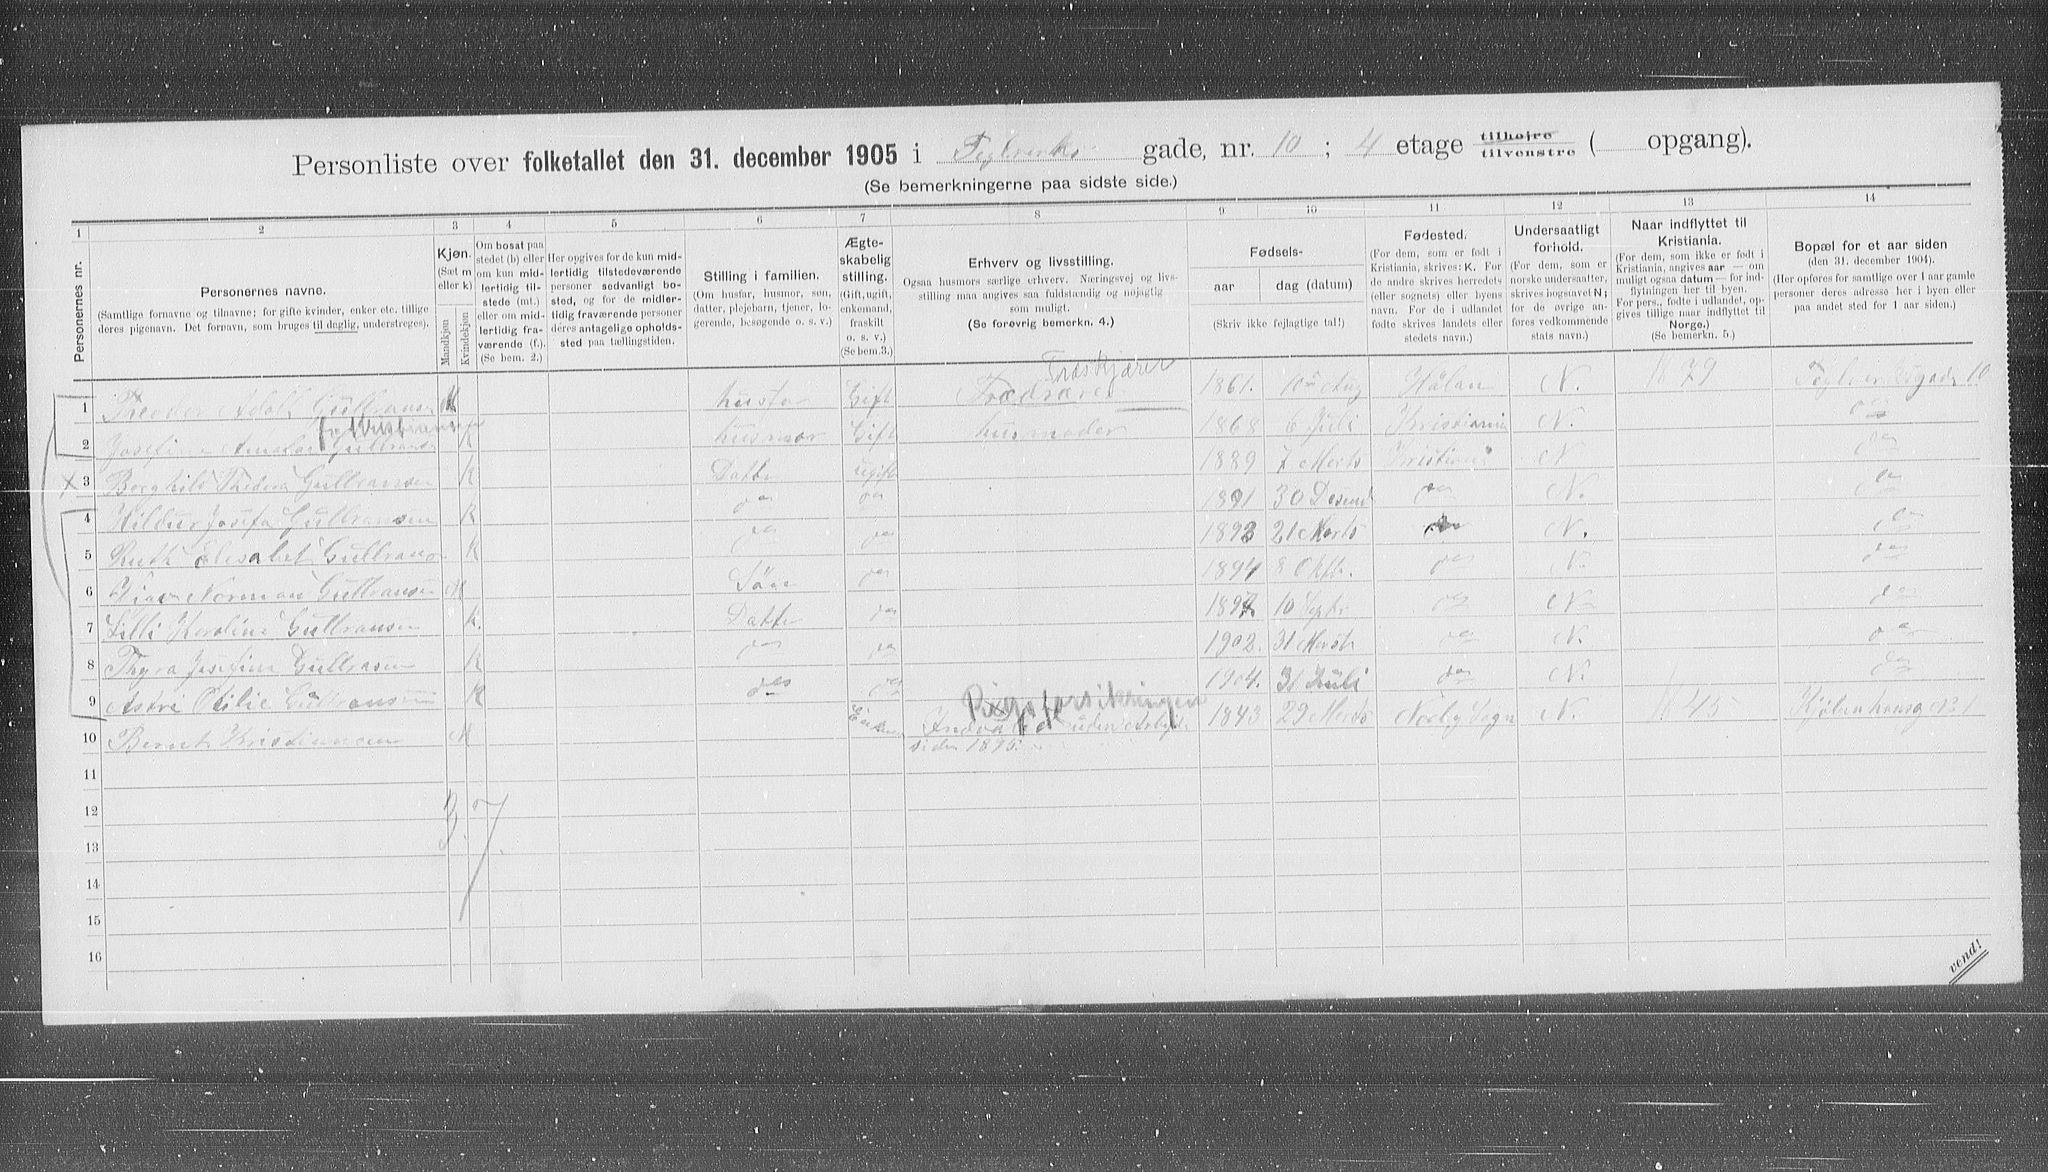 Personliste over folketallet den 31. december 1905 i Teglverks gade, nr. 10 ; 4 etage tilhøjre tilvenstre ( opgang).
(Se bemerkningerne paa sidste side.)
1 2 3 4 5 6 7 8 9 10 11 12 13 14
Personernes nr.
Personernes navne.
(Samtlige fornavne og tilnavne; for gifte kvinder, enker etc. tillige deres pigenavn. Det fornavn, som bruges til deglig, understreges).
Kjøn.
(Sæt m eller k)
Mandkjøn
Kvindekjøn
Om bosat paa stedet (b) eller om kun midlertidig tilstede (mt.) eller om midlertidig fraværende (f.). (Se bem. 2.)
Her opgives for de kun midlertidig tilstedeværende personer sedvanlig bosted, og for de midlertidig fraværende personer deres antagelige opholdssted paa tællingstiden.
Stilling i familien.
(Om husfar, husmor, søn, datter, plejebarn, tjener, logerende, besøgende o. s. v.)
Ægteskabelig stilling.
(Gift, ugift, enkemand, fraskilt o. s. v.) (Se bem. 3.)
Erhverv og livsstilling.
Ogsaa husmors særlige erhverv. Næringsvej og livsstilling maa angives saa fuldstændig og nøjagtig som muligt.
(Se forøvrig bemerkn. 4.)
Fødsels-
aar dag (datum)
(Skriv ikke fejlagtige tal!)
Fødested.
(For dem, som er født i Kristiania, skrives: K. For de andre skrives herredets (eller sognets) eller byens navn. For de i udlandet fødte skrives landets eller stedets navn.)
Undersaatligt forhold.
(For dem, som er norske undersaatter, skrives bogstavet N; for de øvrige anføres vedkommende stats navn.)
Naar indflyttet til Kristiania.
(For dem, som ikke er født i Kristiania, angives aar — om muligt ogsaa datum — for indflytningen her til byen. For pers., fødte i udlandet, opgives tillige naar indflyttet til Norge.) (Se bemerkn. 5.)
Bopæl for et aar siden
(den 31. december 1904).
(Her opføres for samtlige over 1 aar gamle personer deres adresse her i byen eller paa andet sted for 1 aar siden.)
Træskjærer
1 Theodor Adolf Gulbransen M husfar Gift 1861. 10 Aug Hölan N. 79 10
f. Kristiansen
2 Josefine Amalia Gulbransen K husmor Gift husmoder 1868 6 Juli Kristiania N. do
x 3 Borghild Thedora Gulbransen K Datter ugift 1889 7 Marts Kristiania N do
4 Hildur Josefa Gulbransen K do do 1891 30 Desemb do N. do
5 Ruth Elesabet Gulbransen K do do 1893 21 Marts do N. do
6 Norman Gulbransen M Sön do 1894 8 Oktb. do N. do
7 Lilli Karoline Gulbransen K. Datter do 1897 10 Septr do N do
8 Thyra Josefine Gulbransen K do do 1902. 31 Marts do N. do
9 Astri Otilie Gulbransen K do do 1904. 31 Juli do N. do
Rigsforsikringen
10 Bernt Kristiansen M Enkem 1843 29 Marts Næsby Sogn N. 45
uden Arbejde siden 1895.
11
12
13
14
15
16
3. 7.
vend!